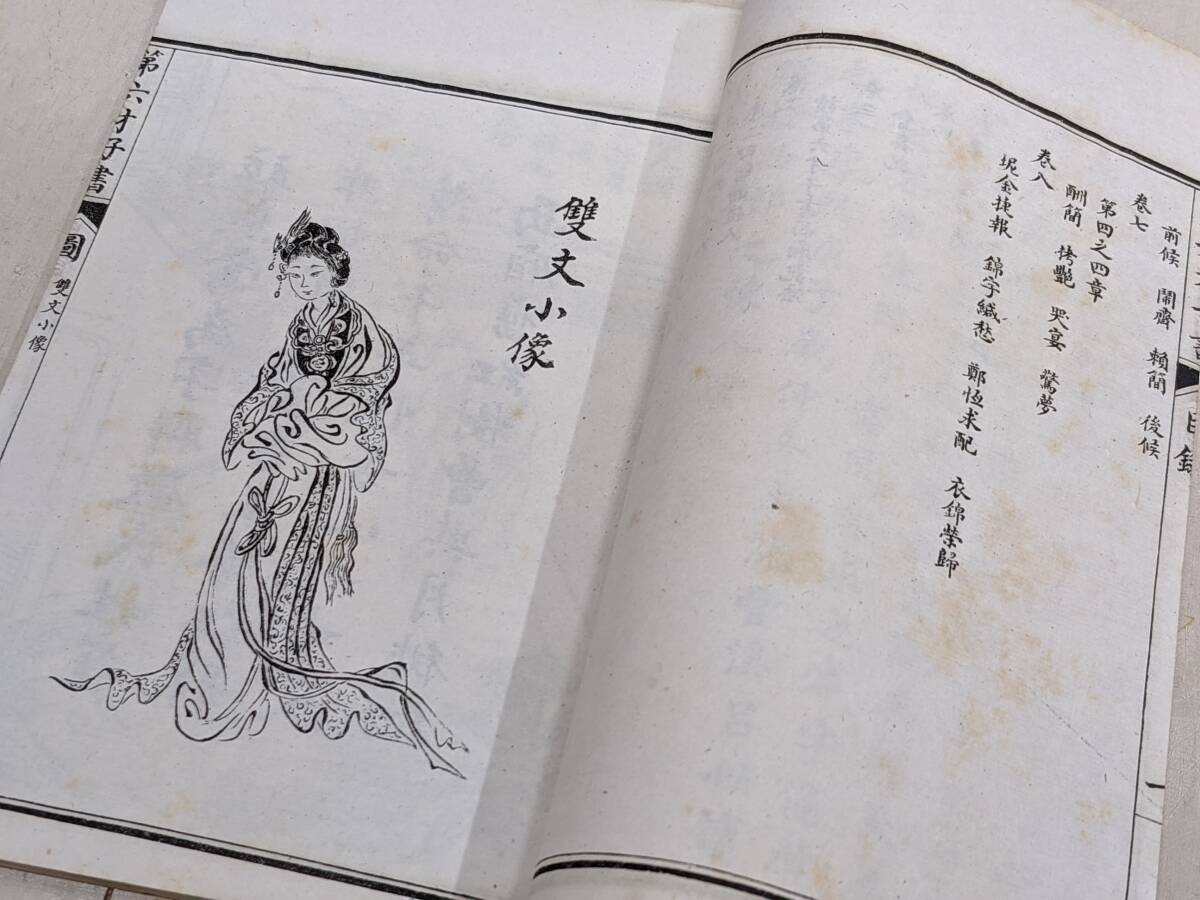 前候 鬧齋 賴簡 後候
卷七
第四之四章
酬簡 拷艷 哭宴 驚夢
卷八
坭金捷報 錦字緘愁 鄭恆求配 衣錦榮歸
目錄
一
雙文小像
第六才子書
圖
雙文小像